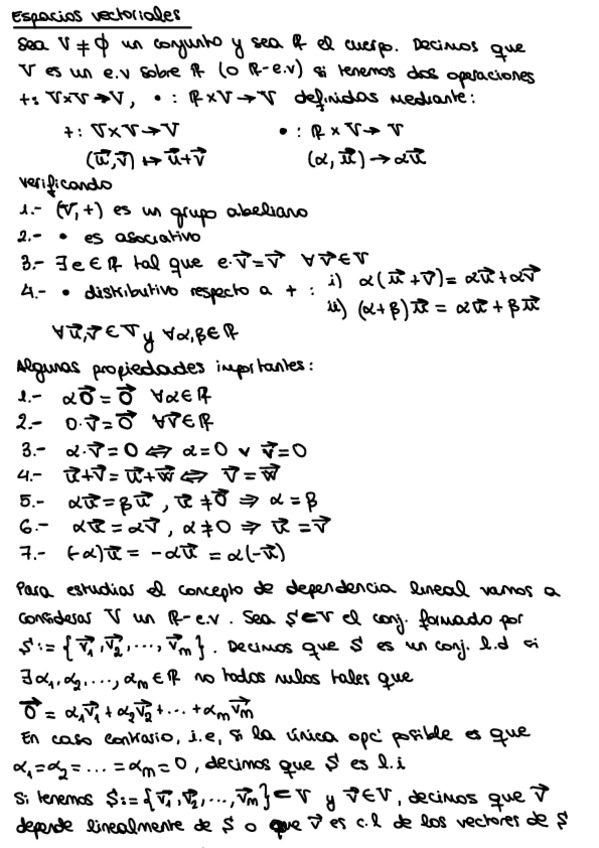 Espacios vectoriales
Sea V ≠ ∅ un conjunto y sea ℝ el cuerpo. Decimos que
V es un e.v sobre ℝ (o ℝ-e.v) si tenemos dos operaciones
+: V×V→V, • : ℝ×V→V definidas mediante:
+: V×V→V • : ℝ×V→V
(u⃗,v⃗) ↦ u⃗+v⃗ (α, u⃗) → αu⃗
verificando
1.- (V,+) es un grupo abeliano
2.- • es asociativo
3.- ∃e∈ℝ tal que e·v⃗=v⃗ ∀v⃗∈V
4.- • distributivo respecto a + : i) α(u⃗+v⃗)= αu⃗+αv⃗
ii) (α+β)u⃗ = αu⃗+βu⃗
∀u⃗,v⃗∈V y ∀α,β∈ℝ
Algunas propiedades importantes:
1.- α0⃗ = 0⃗ ∀α∈ℝ
2.- 0·v⃗=0⃗ ∀v⃗∈ℝ
3.- α·v⃗=0 ⇔ α=0 ∨ v⃗=0
4.- u⃗+v⃗=u⃗+w⃗ ⇔ v⃗=w⃗
5.- αu⃗=βu⃗ , u⃗≠0⃗ ⇒ α=β
6.- αu⃗=αv⃗ , α≠0 ⇒ u⃗=v⃗
7.- (-α)u⃗ = -αu⃗ = α(-u⃗)
Para estudiar el concepto de dependencia lineal vamos a
considerar V un ℝ-e.v. Sea S⊂V el conj. formado por
S:= {v⃗₁,v⃗₂,...,v⃗ₘ}. Decimos que S es un conj. l.d si
∃α₁,α₂,...,αₘ∈ℝ no todos nulos tales que
0⃗ = α₁v⃗₁+α₂v⃗₂+...+αₘv⃗ₘ
En caso contrario, i.e, si la única opc' posible es que
α₁=α₂=...=αₘ=0, decimos que S es l.i
Si tenemos S:={v⃗₁,v⃗₂,...,v⃗ₘ}⊂V y v⃗∈V, decimos que v⃗
depende linealmente de S o que v⃗ es c.l de los vectores de S